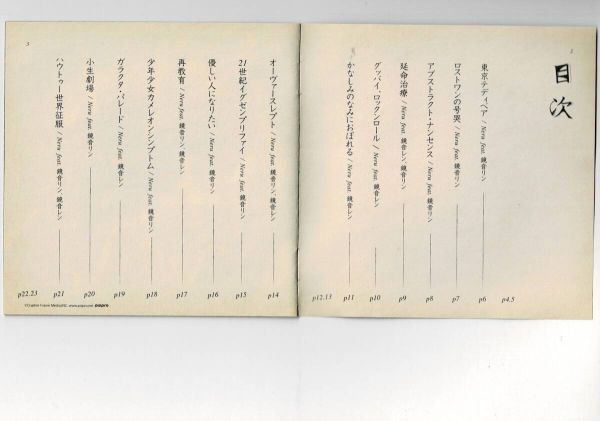 目次
東京テディベア / Neru feat. 鏡音リン
ロストワンの号哭 / Neru feat. 鏡音リン
アブストラクト・ナンセンス / Neru feat. 鏡音リン
延命治療 / Neru feat. 鏡音レン、鏡音リン
グッバイ、ロックンロール / Neru feat. 鏡音レン
かなしみのなみにおぼれる / Neru feat. 鏡音レン
p4.5
p6
p7
p8
p9
p10
p11
p12.13
3
オーヴァースレプト / Neru feat. 鏡音リン、鏡音レン
21世紀イグゼンプリファイ / Neru feat. 鏡音リン
優しい人になりたい / Neru feat. 鏡音リン
再教育 / Neru feat. 鏡音リン、鏡音レン
少年少女カメレオンシンプトム / Neru feat. 鏡音リン
ガラクタ・パレード / Neru feat. 鏡音レン
小生劇場 / Neru feat. 鏡音リン
ハウトゥー世界征服 / Neru feat. 鏡音リン、鏡音レン
p14
p15
p16
p17
p18
p19
p20
p21
p22.23
www.piapro.net piapro